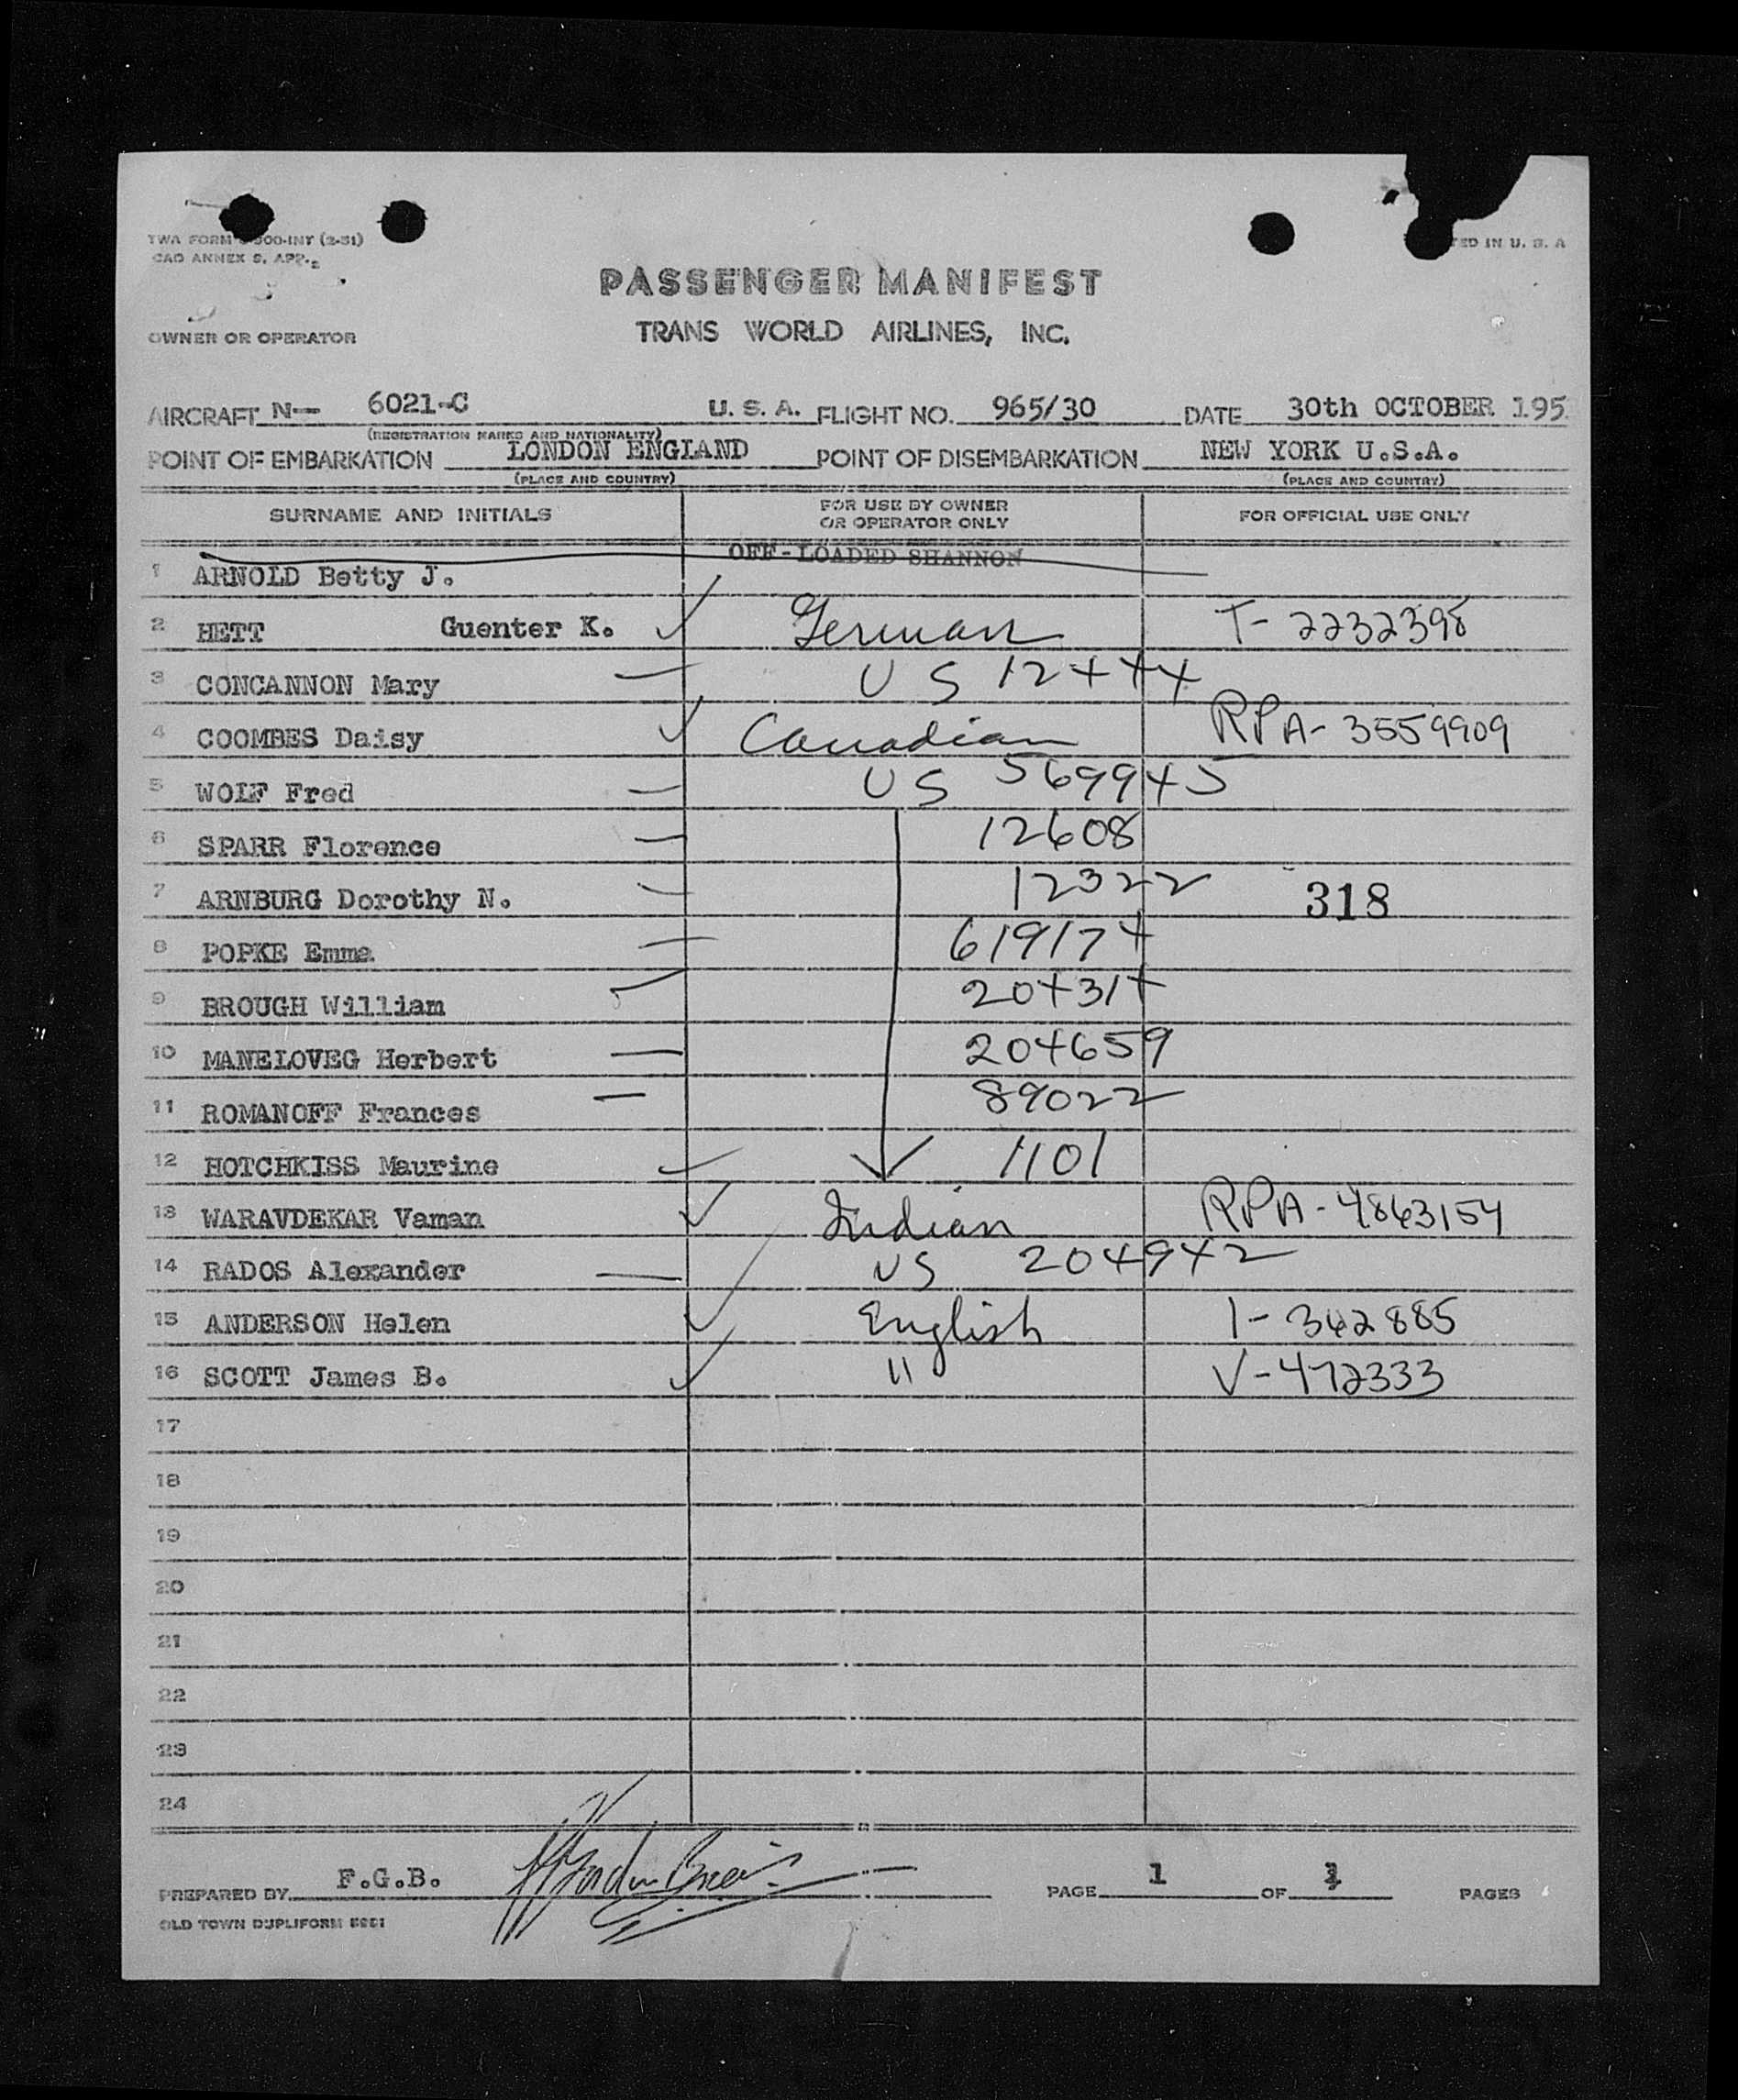 TWA FORM 00-INT (2-51)
CAO ANNEX 9, APP. 2
ED IN U. S. A
PASSENGER MANIFEST
OWNER OR OPERATOR
TRANS WORLD AIRLINES, INC.
AIRCRAFT N— 6021-C U. S. A. FLIGHT NO. 965/30 DATE 30th OCTOBER 195
(REGISTRATION MARKS AND NATIONALITY)
POINT OF EMBARKATION LONDON ENGLAND POINT OF DISEMBARKATION NEW YORK U.S.A.
(PLACE AND COUNTRY) (PLACE AND COUNTRY)
SURNAME AND INITIALS FOR USE BY OWNER OR OPERATOR ONLY FOR OFFICIAL USE ONLY
1 ARNOLD Betty J. OFF-LOADED SHANNON
2 HETT Guenter K. ✓ German T-2232398
3 CONCANNON Mary — US 12444
4 COOMBES Daisy ✓ Canadian RPA-3559909
5 WOLF Fred — US 569945
6 SPARR Florence — 12608
7 ARNBURG Dorothy N. — 12322 318
8 POPKE Emma — 619174
9 BROUGH William — 204314
10 MANELOVEG Herbert — 204659
11 ROMANOFF Frances — 89022
12 HOTCHKISS Maurine ✓ 1101
13 WARAVDEKAR Vaman ✓ Indian RPA-4863154
14 RADOS Alexander — US 204942
15 ANDERSON Helen ✓ English I-362885
16 SCOTT James B. ✓ " V-472333
17
18
19
20
21
22
23
24
PREPARED BY F.G.B. PAGE 1 OF 1 PAGES
OLD TOWN DUPLIFORM